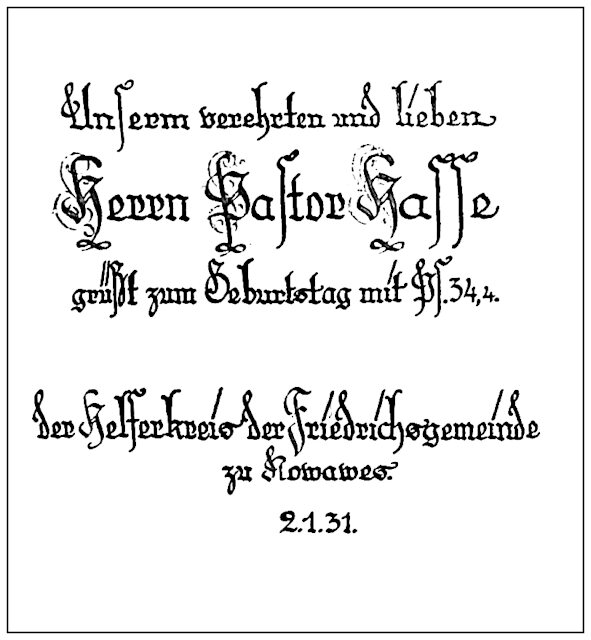 Unserm verehrten und lieben
Herrn Pastor Hasse
grüßt zum Geburtstag mit Ps. 34,4.
der Helferkreis der Friedrichsgemeinde
zu Nowawes.
2.1.31.